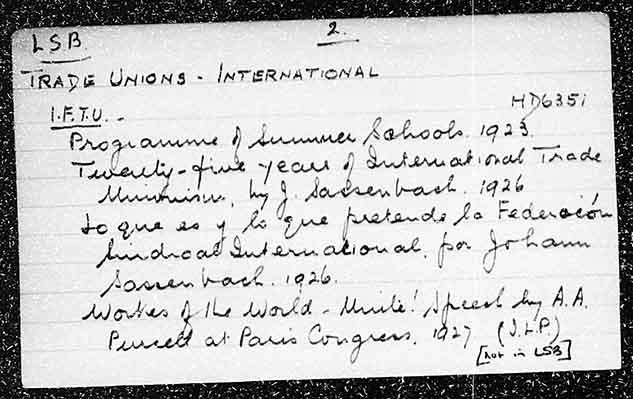 LSB.
2.
TRADE UNIONS - INTERNATIONAL
HD6351
I.F.T.U. -
Programme of Summer Schools. 1923.
Twenty-five years of International Trade
Unionism, by J. Sassenbach. 1926
Lo que es y lo que pretende la Federación
Sindical Internacional, por Johann
Sassenbach. 1926.
Workers of the World - Unite! Speech by A.A.
Purcell at Paris Congress. 1927 (I.L.P.)
[not in LSB]